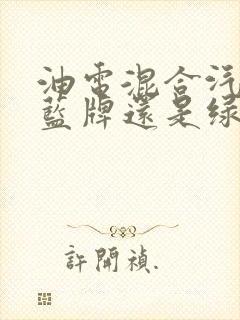 油電混合汽
藍牌還是綠
許開禎.